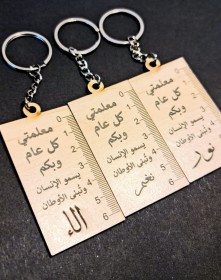 معلمتي
كل عام
وبكم
يسمو الإنسان
وتُبنى الأوطان
آلاء
0
1
2
3
4
5
6
معلمتي
كل عام
وبكم
يسمو الإنسان
وتُبنى الأوطان
0
1
2
3
4
5
6
معلمتي
كل عام
وبكم
يسمو الإنسان
وتُبنى الأوطان
نور
0
1
2
3
4
5
6